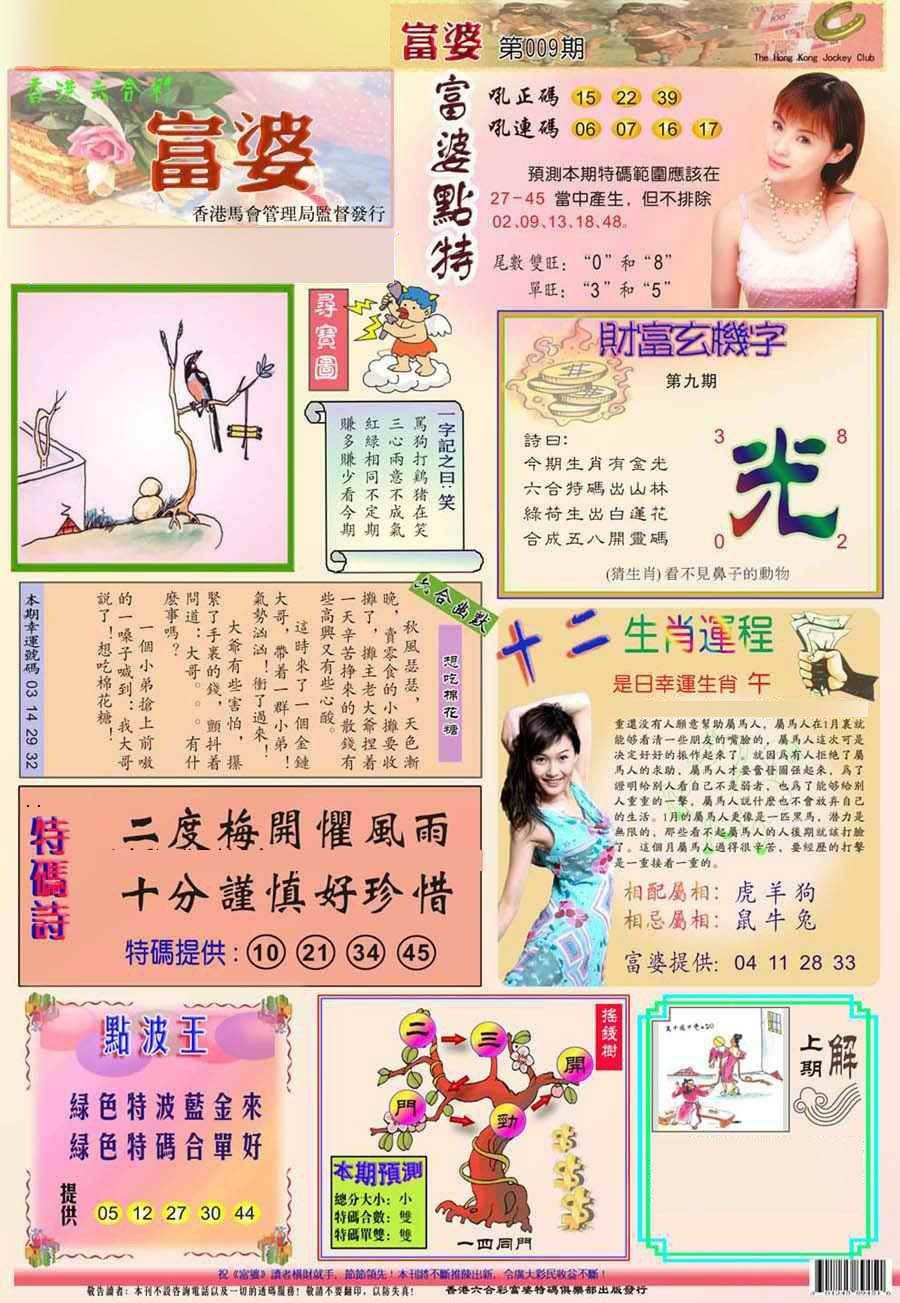 富婆 第009期
The Hong Kong Jockey Club
香港六合彩
富婆
香港馬會管理局監督發行
富婆點特
吼正碼 15 22 39
吼連碼 06 07 16 17
預測本期特碼範圍應該在
27－45 當中產生，但不排除
02、09、13、18、48。
尾數雙旺：“0”和“8”
單旺：“3”和“5”
尋寶圖
一字記之曰：笑
罵狗打鷄猪在笑
三心兩意不成氣
紅綠相同不定期
賺多賺少看今期
財富玄機字
第九期
詩曰：
今期生肖有金光
六合特碼出山林
綠荷生出白蓮花
合成五八開靈碼
3 8
光
0 2
(猜生肖) 看不見鼻子的動物
六合幽默
想吃棉花糖
秋風瑟瑟，天色漸
晚，賣零食的小攤要收
攤了，攤主老大爺捏着
一天辛苦掙來的散錢有
些高興又有些心酸。
這時來了一個金鏈
大哥，帶着一群小弟！
氣勢洶洶！衝了過來！
大爺有些害怕，攥
緊了手裏的錢，顫抖着
問道：大哥。。。有什
麽事嗎？
一個小弟搶上前嗷
的一嗓子喊到：我大哥
說了！想吃棉花糖！
本期幸運號碼 03 14 29 32
十二生肖運程
是日幸運生肖 午
重還没有人願意幫助屬馬人，屬馬人在1月裏就
能够看清一些朋友的嘴臉的，屬馬人這次可是
决定好好的振作起來了，就因爲有人拒絶了屬
馬人的求助，屬馬人才要奮發圖强起來，爲了
證明給别人看自己不是弱者，也爲了能够給别
人重重的一擊，屬馬人説什麽也不會放弃自己
的生活。1月的屬馬人更像是一匹黑馬，潜力是
無限的，那些看不起屬馬人的人後期就該打臉
了。這個月屬馬人過得很辛苦，要經歷的打擊
是一重接着一重的。
相配屬相：虎羊狗
相忌屬相：鼠牛兔
富婆提供：04 11 28 33
特碼詩
二度梅開懼風雨
十分謹慎好珍惜
特碼提供：10 21 34 45
點波王
綠色特波藍金來
綠色特碼合單好
提供 05 12 27 30 44
搖錢樹
二 三 開
門 勁
本期預測
總分大小：小
特碼合數：雙
特碼單雙：雙
一四同門
解
上期
祝《富婆》讀者橫財就手，節節領先！本刊將不斷推陳出新，令廣大彩民收益不斷！
敬告讀者：本刊不設咨詢電話以及一切的透碼服務！敬請不要翻印，以防失真！ 香港六合彩富婆特碼俱樂部出版發行